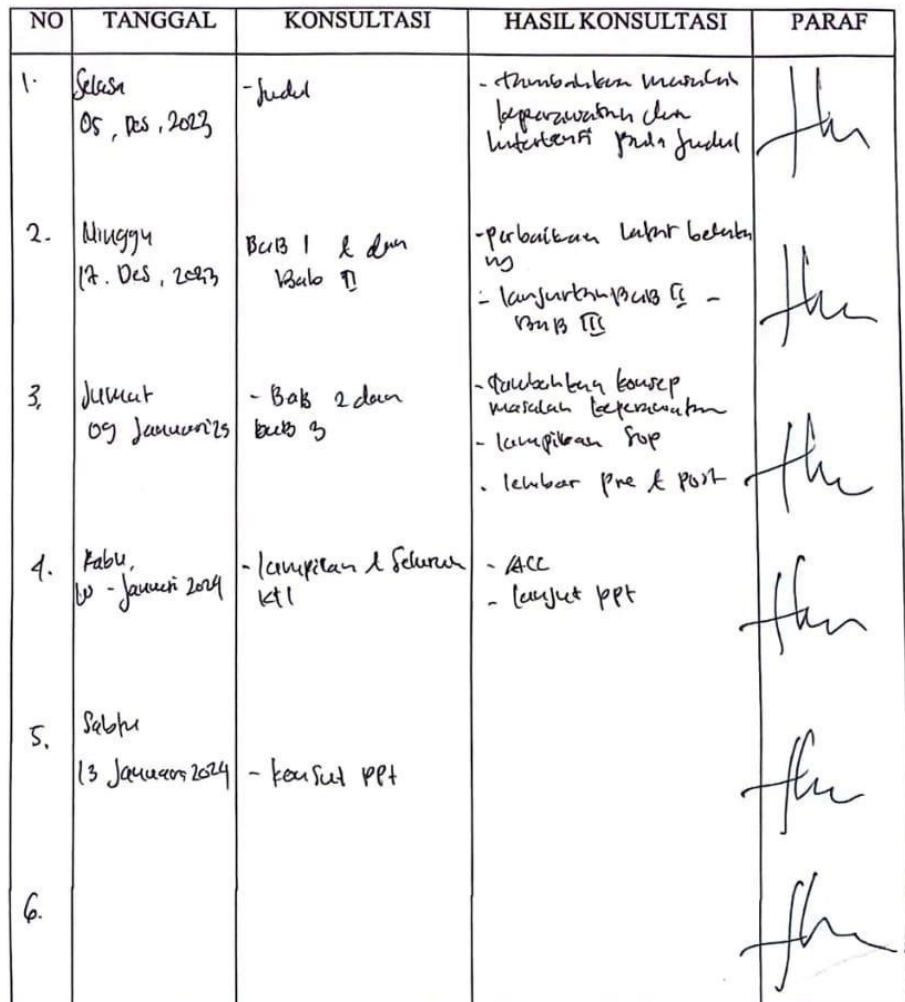 NO TANGGAL KONSULTASI HASIL KONSULTASI PARAF
1. Selasa
05, Des, 2023
- Judul
- tambahkan masalah
keperawatan dan
intervensi pada judul
2. Minggu
17. Des, 2023
BaB 1 & dan
Bab II
- perbaikan latar belaka
ng
- lanjutkan BaB II -
BaB III
3. Jumat
09 Januari
- Bab 2 dan
bab 3
- tambahkan konsep
masalah keperawatan
- lampirkan Sop
- lembar pre & post
4. Rabu,
10 - Januari 2024
- lampiran & Seluruh
KTI
- ACC
- lanjut ppt
5. Sabtu
13 Januari 2024
- konsul ppt
6.